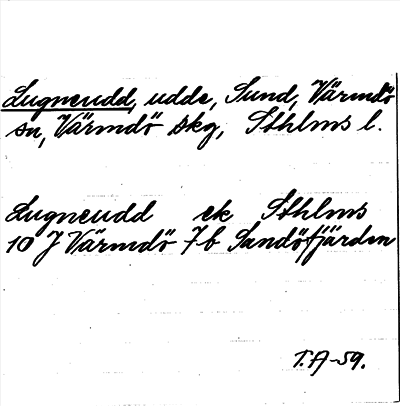 Lugneudd, udde, Sund, Värmdö
sn, Värmdö skg, Sthlms l.
Lugneudd ek Sthlms
10 J Värmdö 7b Sandöfjärden
T.A-59.